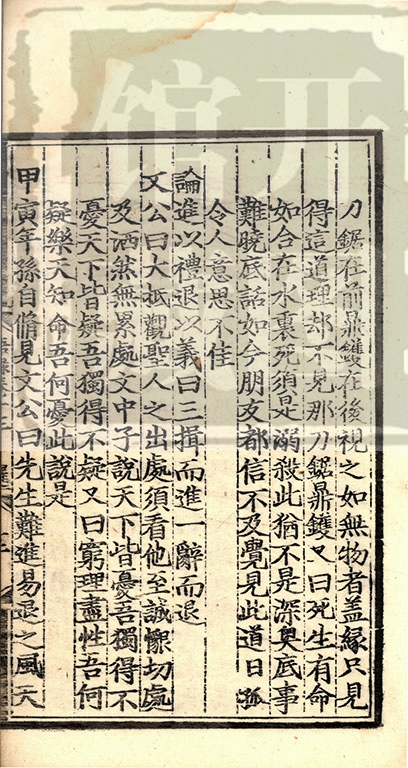 刀鋸在前鼎鑊在後視之如無物者盖緣只見
得這道理却不見那刀鋸鼎鑊又曰死生有命
如合在水裏死須是溺殺此猶不是深奥底事
難曉底話如今朋友都信不及覺見此道日孤
令人意思不佳
論進以禮退以義曰三揖而進一辭而退
文公曰大抵觀聖人之出處須看他至誠懇切處
及洒然無累處文中子說天下皆憂吾獨得不
憂天下皆疑吾獨得不疑又曰窮理盡性吾何
疑樂天知命吾何憂此說是
甲寅年孫自脩見文公曰先生難進易退之風天